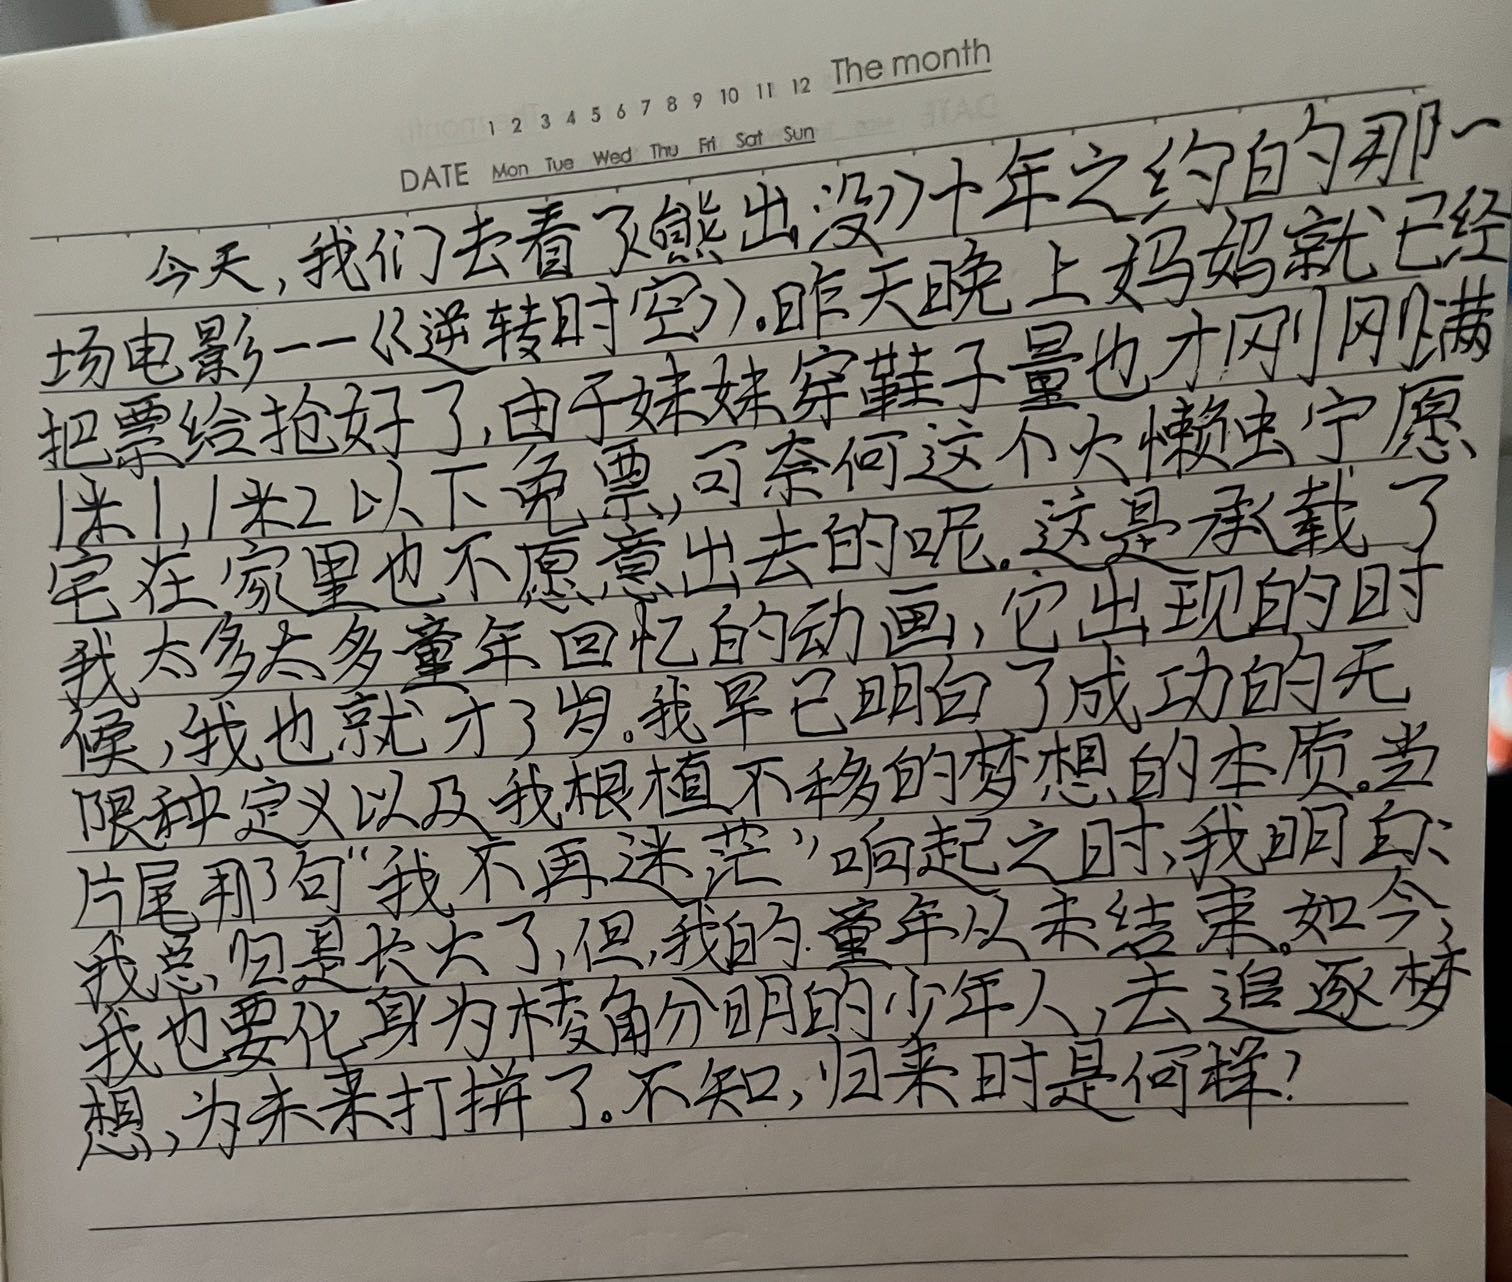 1 2 3 4 5 6 7 8 9 10 11 12 The month
DATE Mon Tue Wed Thu Fri Sat Sun
今天,我们去看了《熊出没》十年之约的那一
场电影--《逆转时空》.昨天晚上妈妈就已经
把票给抢好了,由于妹妹穿鞋子量也才刚刚满
1米1,1米2以下免票,可奈何这个大懒虫宁愿
宅在家里也不愿意出去的呢。这是承载了
我太多太多童年回忆的动画,它出现的时
候,我也就才3岁。我早已明白了成功的无
限种定义以及我根植不移的梦想的本质。当
片尾那句“我不再迷茫”响起之时,我明白:
我总归是长大了,但,我的童年从未结束。如今,
我也要化身为棱角分明的少年人,去追逐梦
想,为未来打拼了。不知,归来时是何样?